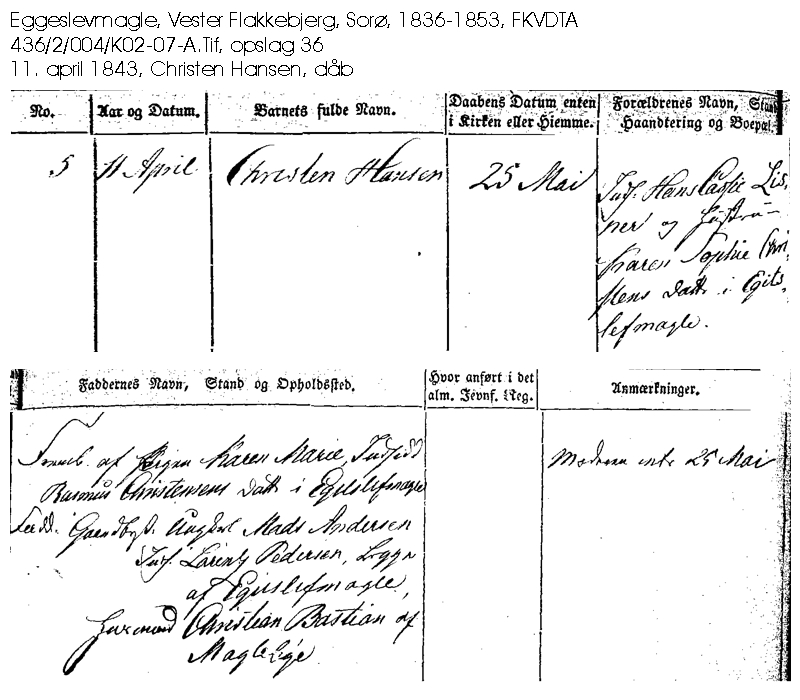 Eggeslevmagle, Vester Flakkebjerg, Sorø, 1836-1853, FKVDTA
436/2/004/K02-07-A.Tif, opslag 36
11. april 1843, Christen Hansen, dåb
No. Aar og Datum. Barnets fulde Navn. Daabens Datum enten i Kirken eller Hiemme. Forældrenes Navn, Stand Haandtering og Boepæl.
5 11 April Christen Hansen 25 Mai
Inds. Hans
og Hustru
Karen Sophie Chri-
stens Datt. i Egits-
lefmagle.
Faddernes Navn, Stand og Opholdssted. Hvor anført i det alm. Jevnf. Reg. Anmærkninger.
af Pigen Karen Marie, Indsidd
Rasmus Christensens Datt. i Egitslefmagle
Fadd. Gaardbyst. Ungkarl Mads Andersen
Inds. Larentz Pedersen,
af Egitslefmagle,
Huusmand Christian Bastian af
Magleby
Moderen intr. 25 Mai